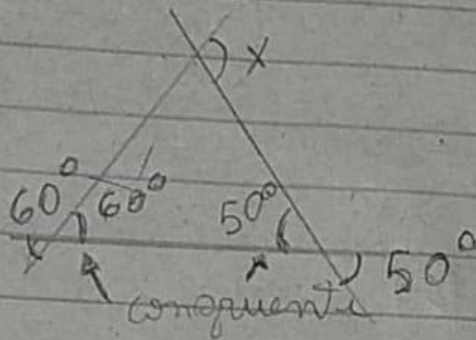 x
60° 60° 50°
50°
congruenti